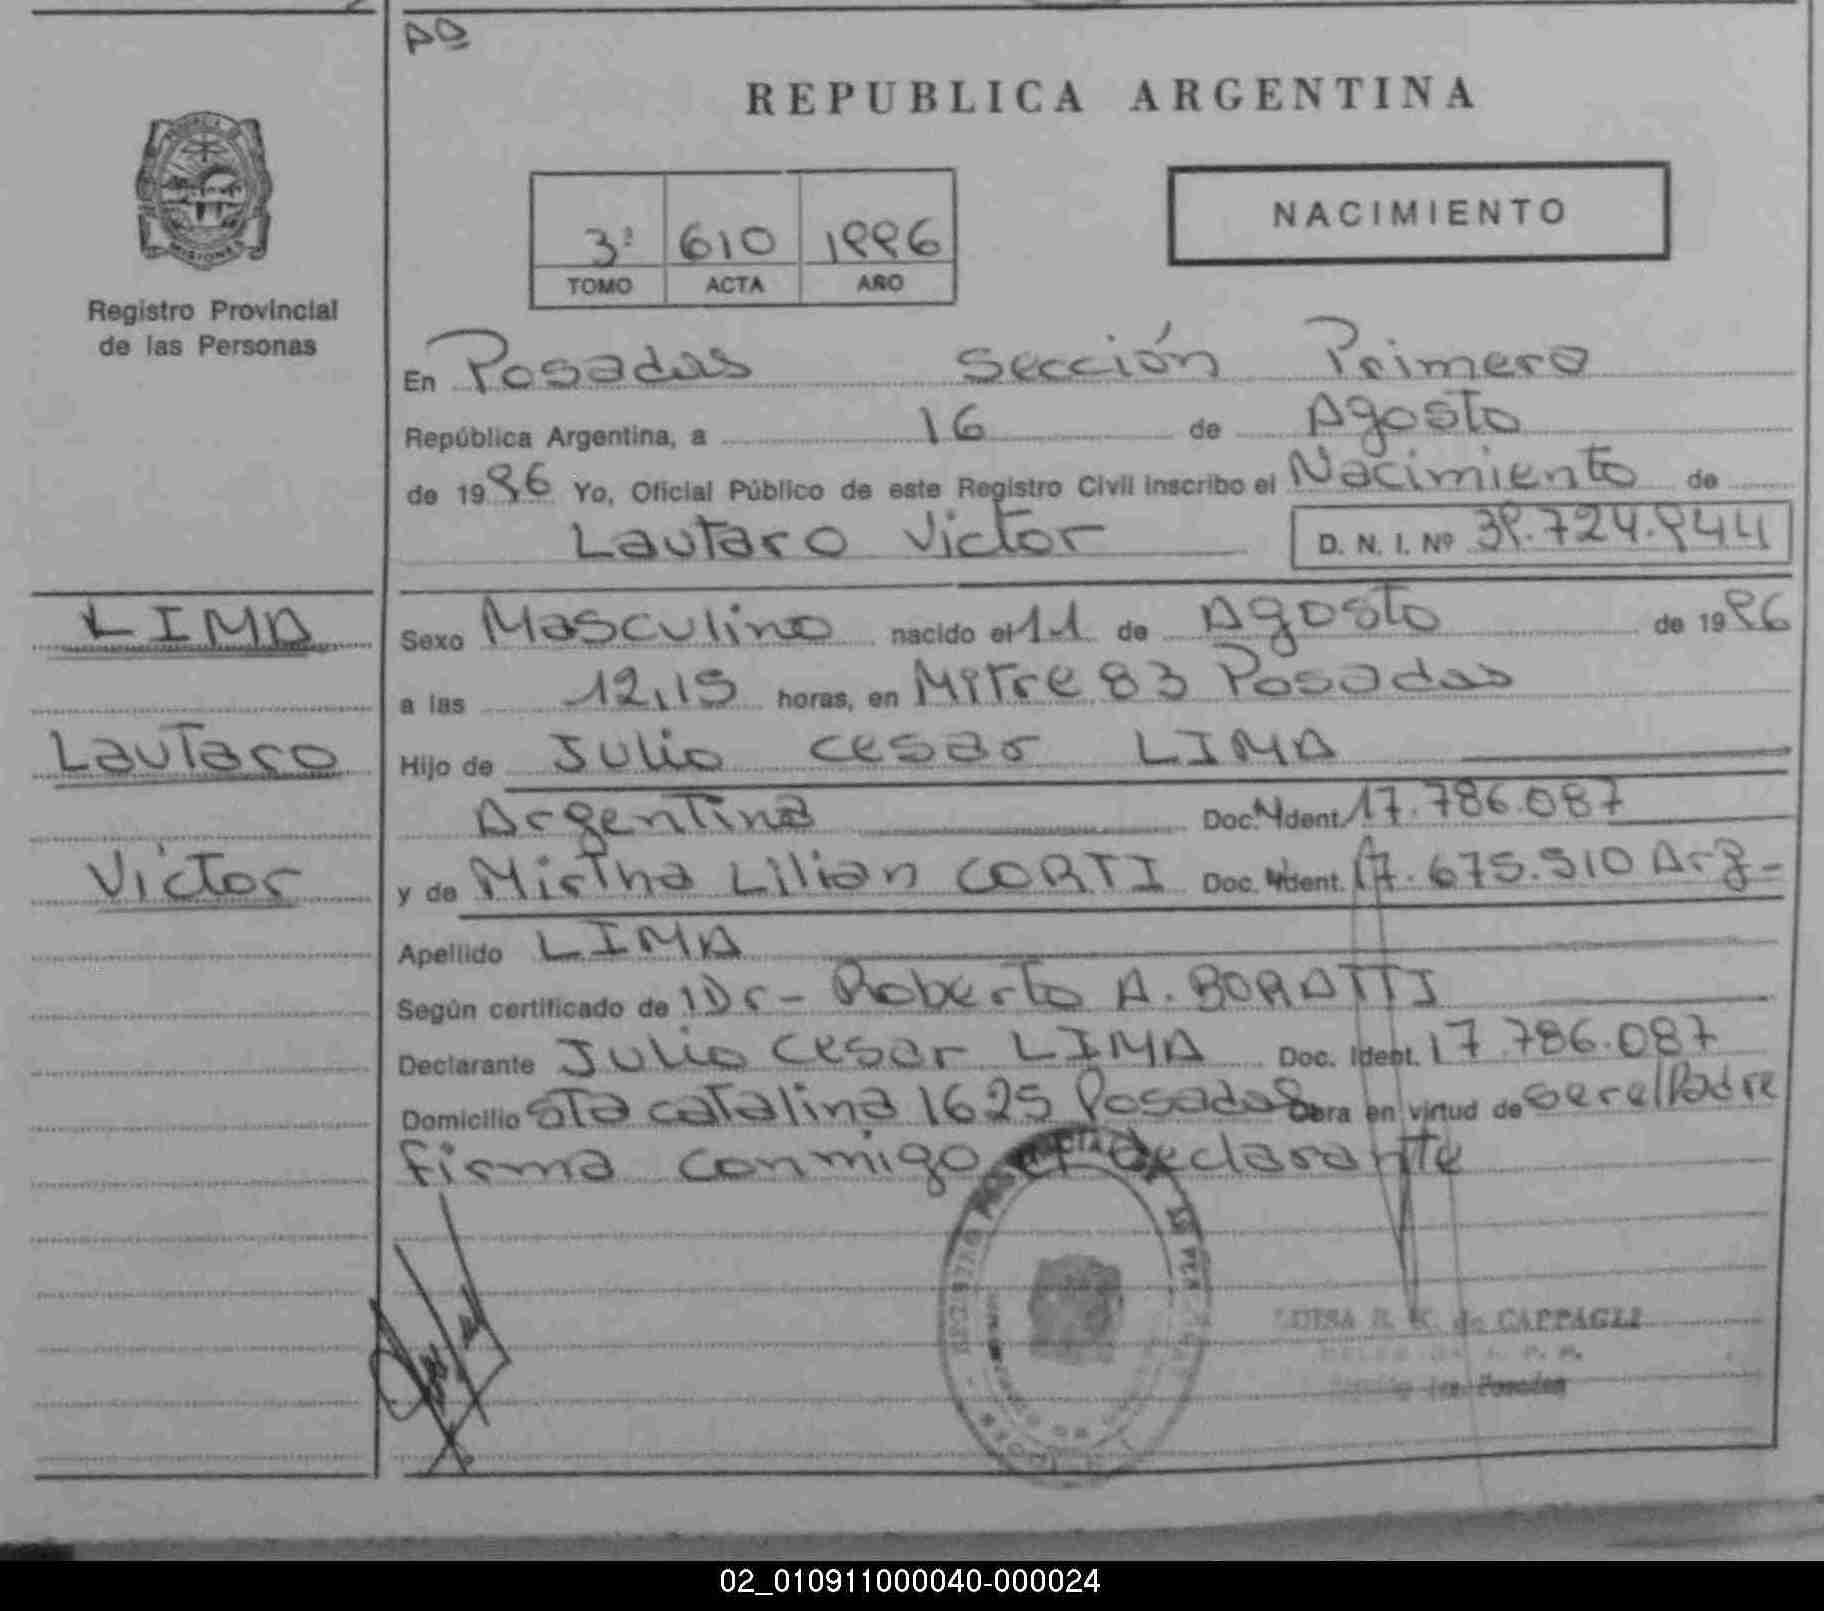 Aº
REPUBLICA ARGENTINA
PROVINCIA DE MISIONES
Registro Provincial
de las Personas
3º 610 1996
TOMO ACTA AÑO
NACIMIENTO
En Posadas Sección Primera
República Argentina, a 16 de Agosto
de 1996 Yo, Oficial Público de este Registro Civil inscribo el Nacimiento de
Lautaro Victor D. N. I. Nº 39.724.944
LIMA
Lautaro
Victor
Sexo Masculino nacido el 11 de Agosto de 1996
a las 12,15 horas, en Mitre 83 Posadas
Hijo de Julio Cesar LIMA
Argentina Doc. Ident. 17.786.087
y de Mirtha Lilian CORTI Doc. Ident. 17.675.510 Arg-
Apellido LIMA
Según certificado de Dr- Roberto A. BORATTI
Declarante Julio Cesar LIMA Doc. Ident. 17.786.087
Domicilio Sta Catalina 1625 Posadas Obra en virtud de ser el Padre
firma conmigo el declarante
LUISA de CAPPAGLI
Posadas
02_010911000040-000024